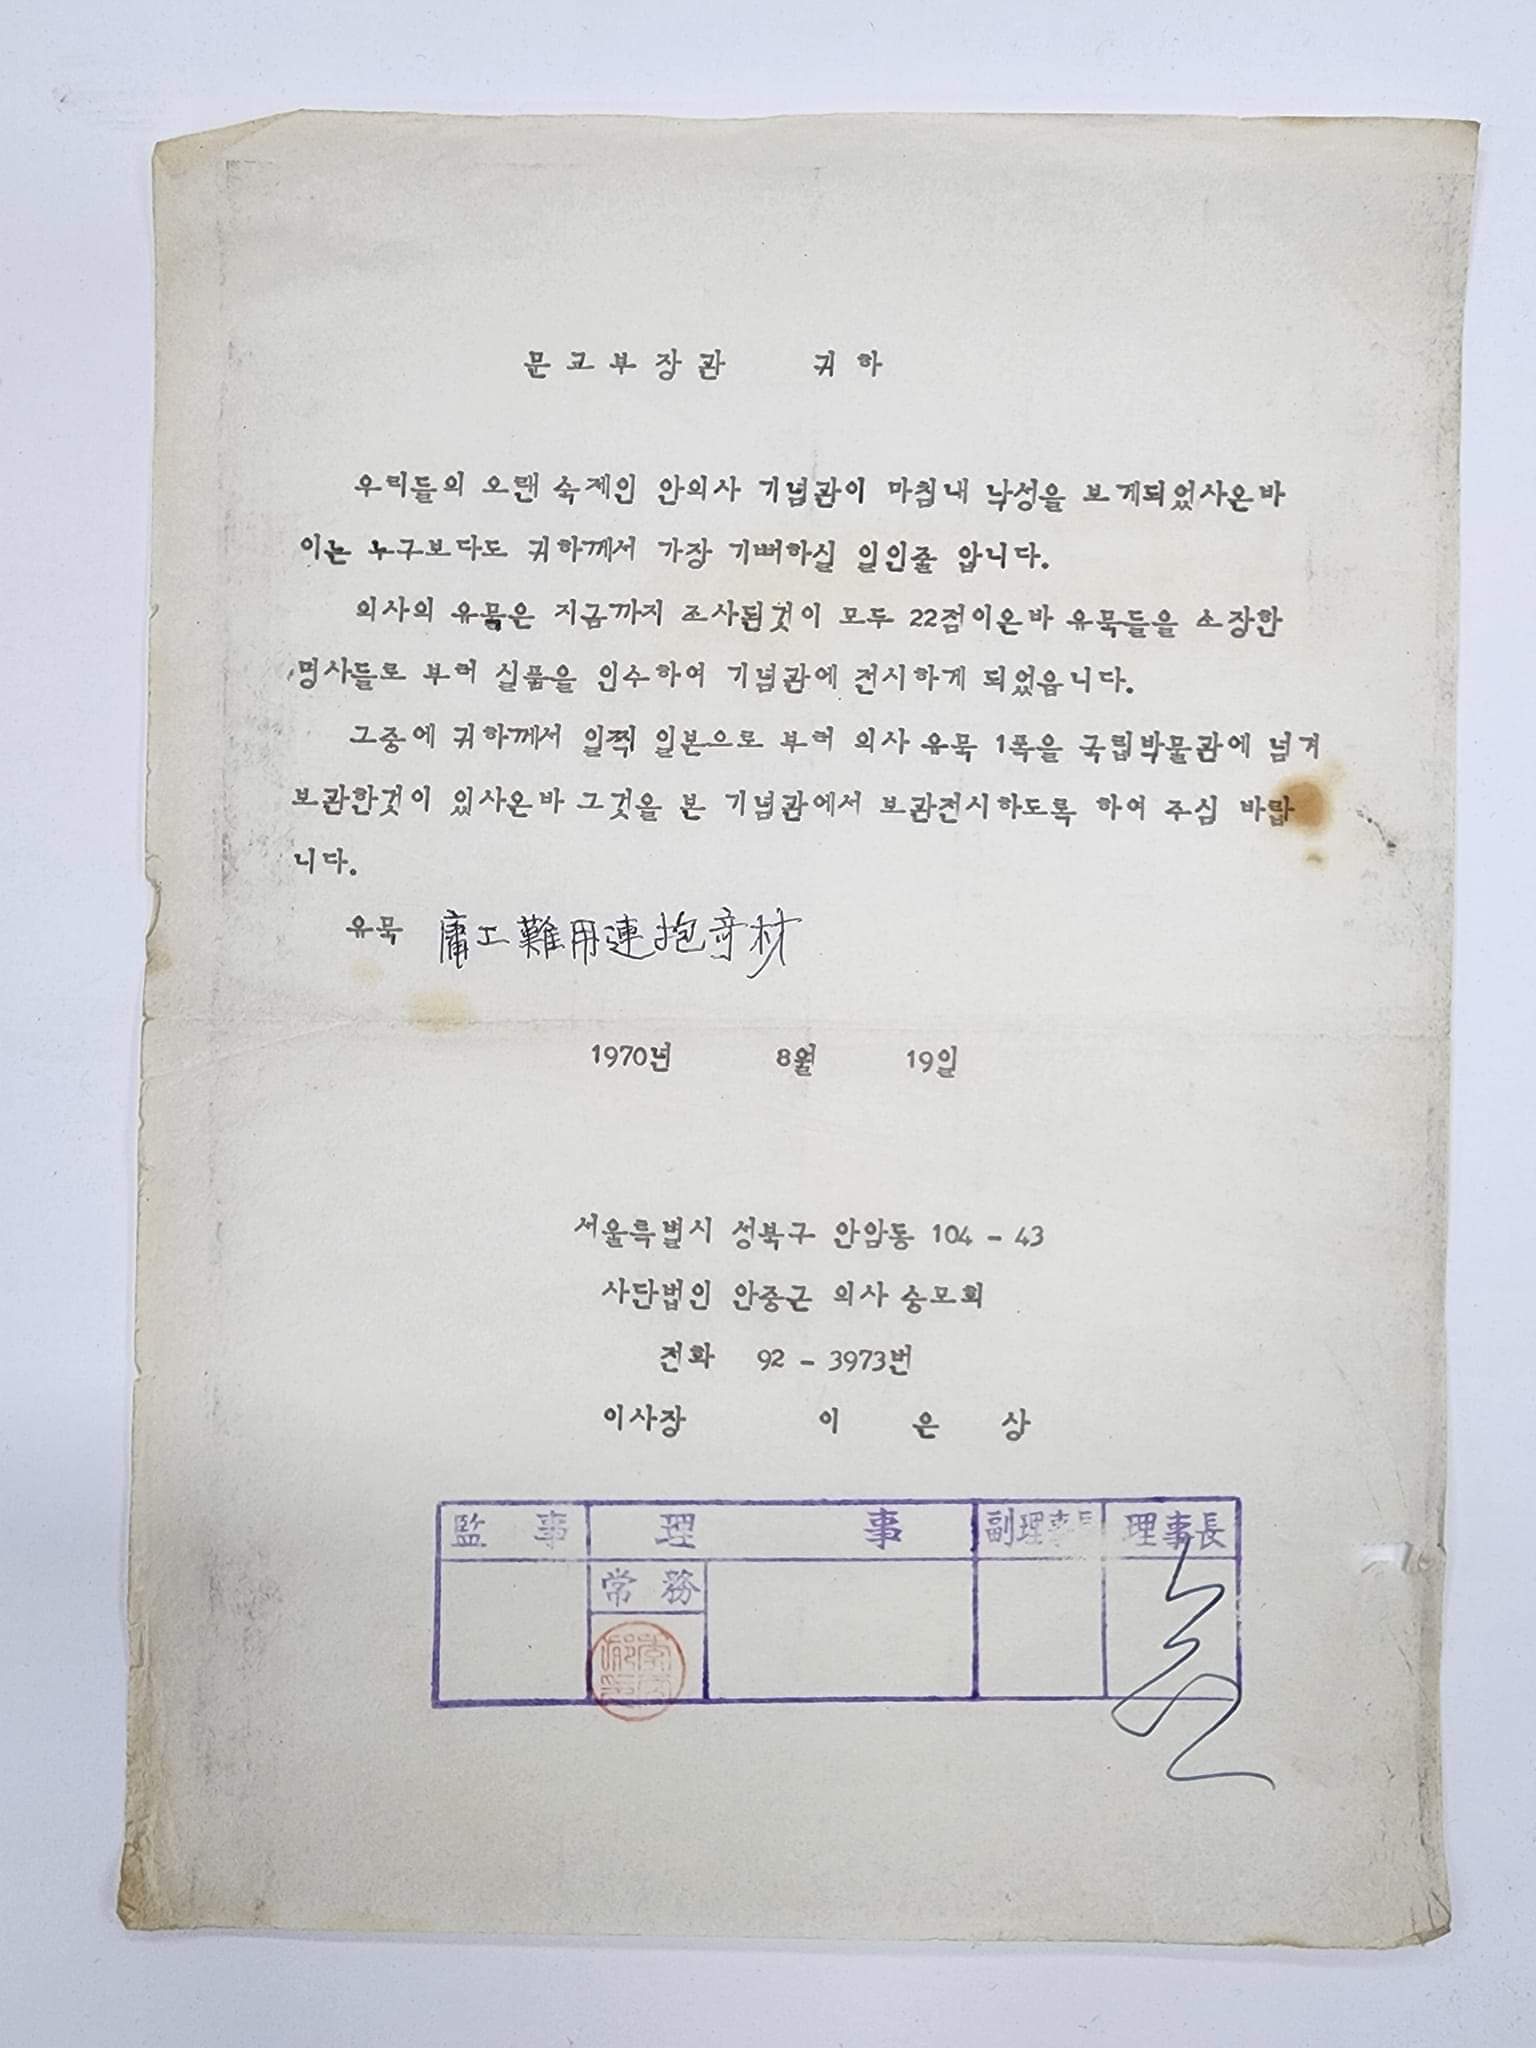 문교부장관 귀하
우리들의 오랜 숙제인 안의사 기념관이 마침내 낙성을 보게되었사온바
이는 누구보다도 귀하께서 가장 기뻐하실 일인줄 압니다.
의사의 유묵은 지금까지 조사된것이 모두 22점이온바 유묵들을 소장한
명사들로 부터 실품을 인수하여 기념관에 전시하게 되었읍니다.
그중에 귀하께서 일찍 일본으로 부터 의사 유묵 1폭을 국립박물관에 넘겨
보관한것이 있사온바 그것을 본 기념관에서 보관전시하도록 하여 주심 바랍
니다.
유묵 庸工難用連抱奇材
1970년 8월 19일
서울특별시 성북구 안암동 104 - 43
사단법인 안중근 의사 숭모회
전화 92 - 3973번
이사장 이 은 상
監事 理事 副理事長 理事長
常務